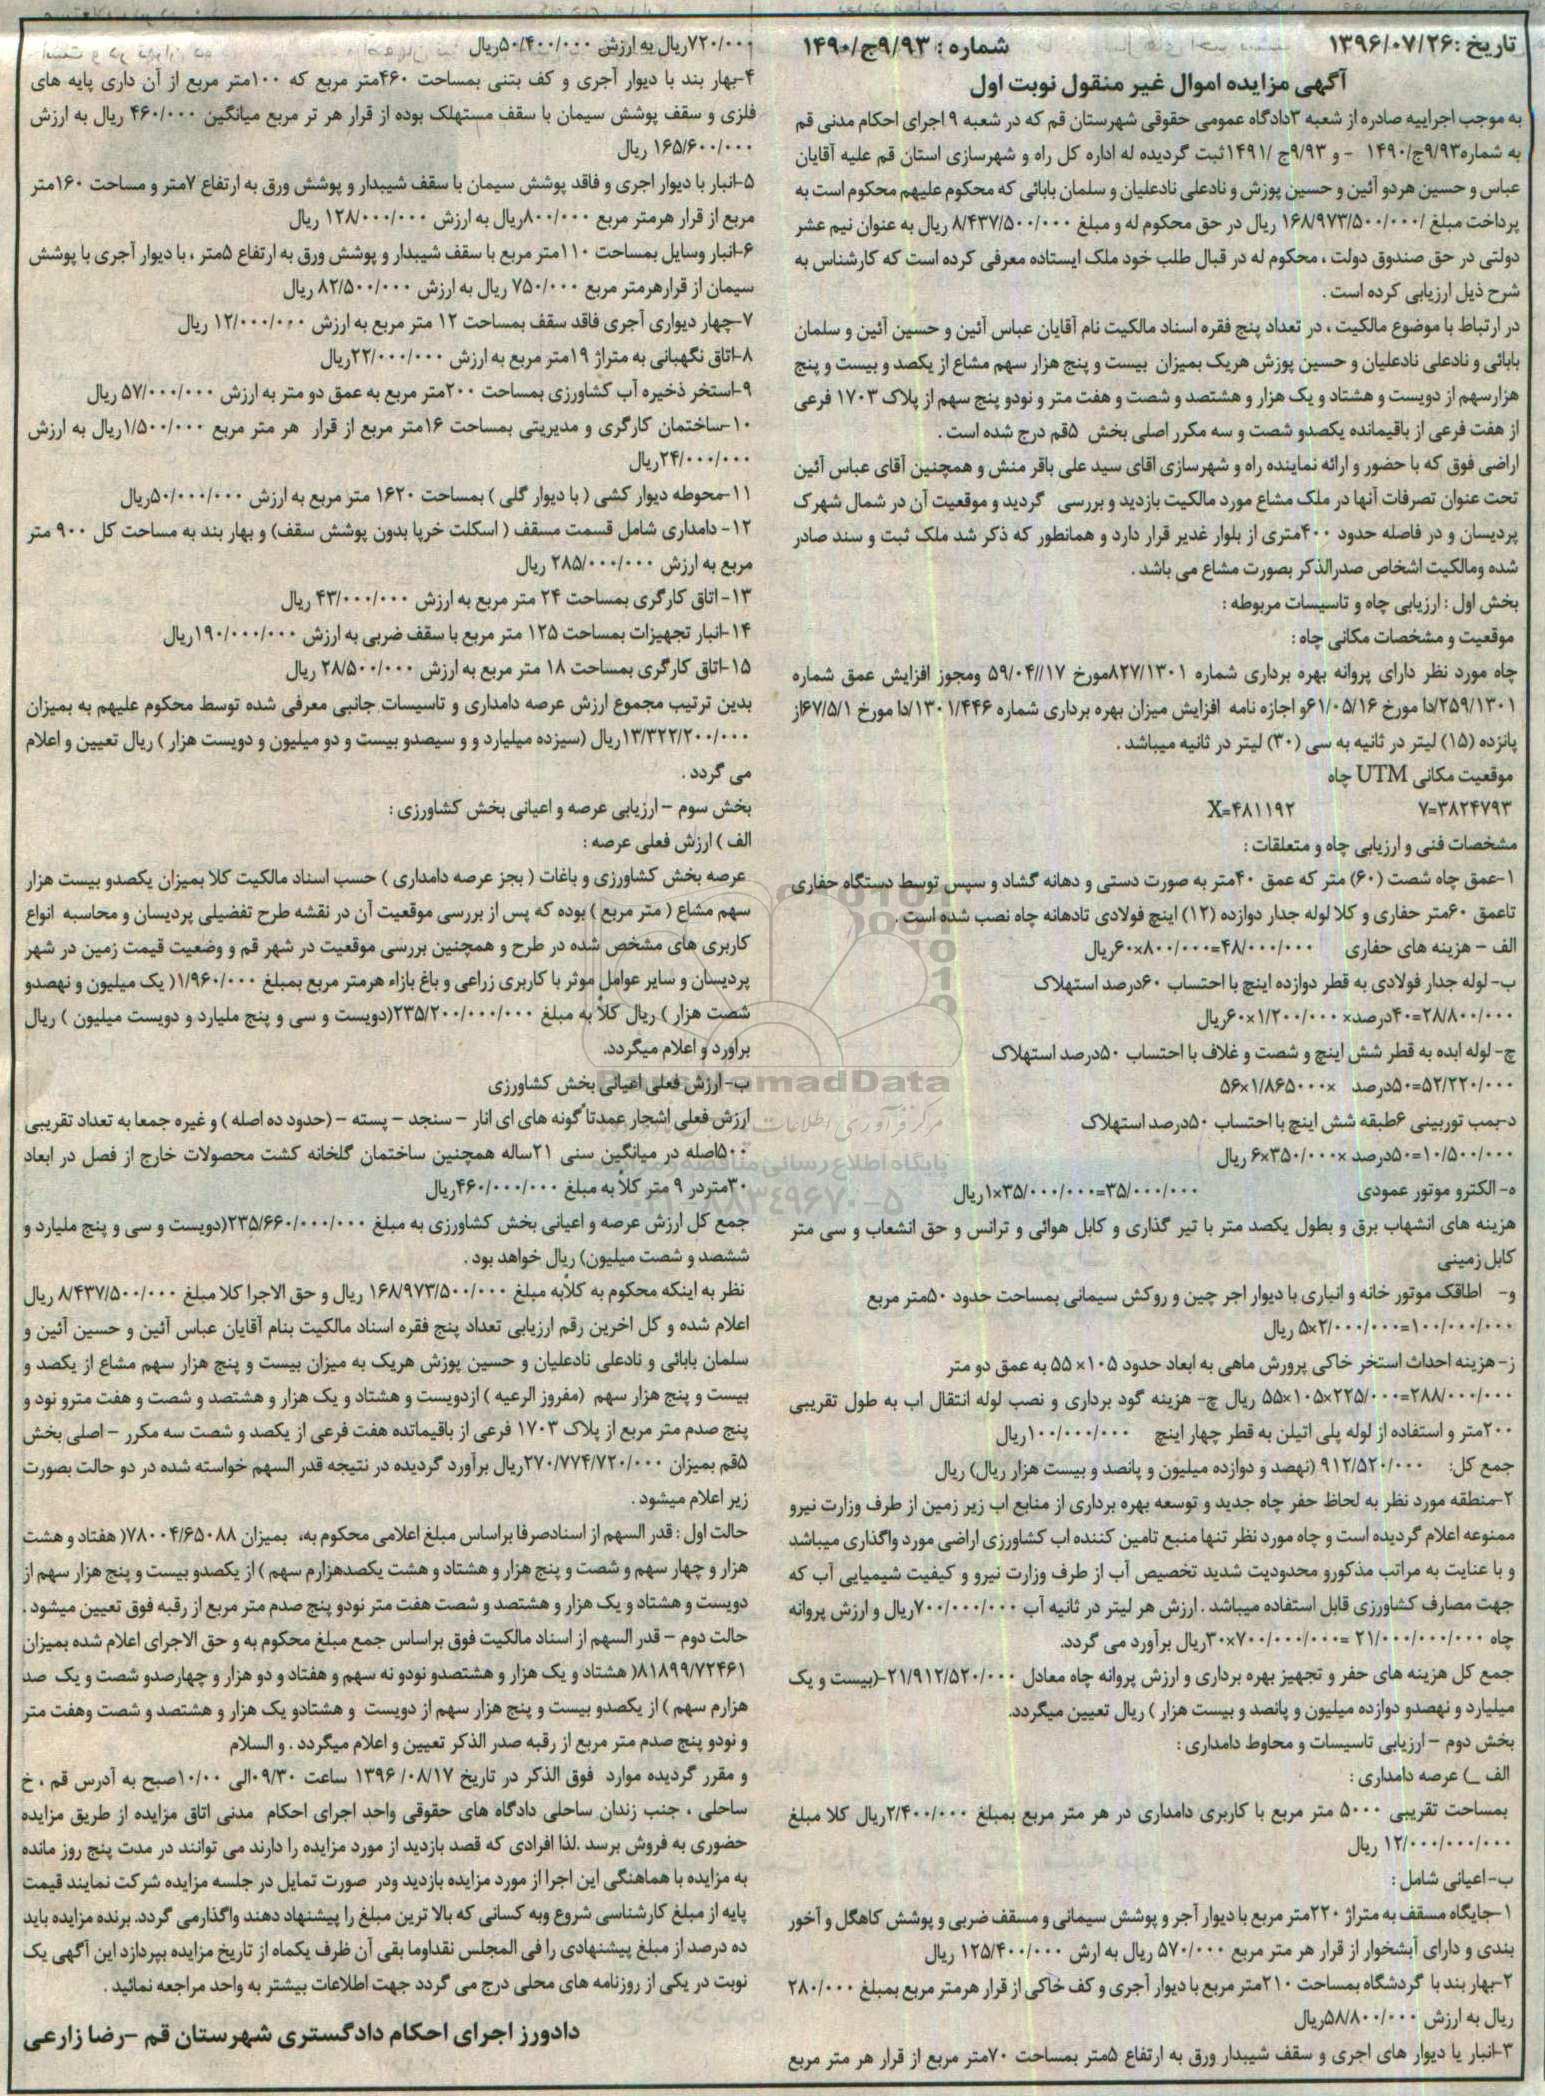 تاریخ :۱۳۹۶/۰۷/۲۶ شماره : ۹/۹۳ج/۱۴۹۰
آگهی مزایده اموال غیر منقول نوبت اول
به موجب اجراییه صادره از شعبه ۳دادگاه عمومی حقوقی شهرستان قم که در شعبه ۹ اجرای احکام مدنی قم
به شماره۹/۹۳ج/۱۴۹۰ - و ۹/۹۳ج /۱۴۹۱ثبت گردیده له اداره کل راه و شهرسازی استان قم علیه آقایان
عباس و حسین هردو آئین و حسین پوزش و نادعلی نادعلیان و سلمان بابائی که محکوم علیهم محکوم است به
پرداخت مبلغ /۱۶۸/۹۷۳/۵۰۰/۰۰۰ ریال در حق محکوم له و مبلغ ۸/۴۳۷/۵۰۰/۰۰۰ ریال به عنوان نیم عشر
دولتی در حق صندوق دولت ، محکوم له در قبال طلب خود ملک ایستاده معرفی کرده است که کارشناس به
شرح ذیل ارزیابی کرده است .
در ارتباط با موضوع مالکیت ، در تعداد پنج فقره اسناد مالکیت نام آقایان عباس آئین و حسین آئین و سلمان
بابائی و نادعلی نادعلیان و حسین پوزش هریک بمیزان بیست و پنج هزار سهم مشاع از یکصد و بیست و پنج
هزارسهم از دویست و هشتاد و یک هزار و هشتصد و شصت و هفت متر و نودو پنج سهم از پلاک ۱۷۰۳ فرعی
از هفت فرعی از باقیمانده یکصدو شصت و سه مکرر اصلی بخش ۵قم درج شده است .
اراضی فوق که با حضور و ارائه نماینده راه و شهرسازی اقای سید علی باقر منش و همچنین آقای عباس آئین
تحت عنوان تصرفات آنها در ملک مشاع مورد مالکیت بازدید و بررسی گردید و موقعیت آن در شمال شهرک
پردیسان و در فاصله حدود ۴۰۰متری از بلوار غدیر قرار دارد و همانطور که ذکر شد ملک ثبت و سند صادر
شده ومالکیت اشخاص صدرالذکر بصورت مشاع می باشد .
بخش اول : ارزیابی چاه و تاسیسات مربوطه :
موقعیت و مشخصات مکانی چاه :
چاه مورد نظر دارای پروانه بهره برداری شماره ۸۲۷/۱۳۰۱مورخ ۵۹/۰۴//۱۷ ومجوز افزایش عمق شماره
۲۵۹/۱۳۰۱/دا مورخ ۶۱/۰۵/۱۶و اجازه نامه افزایش میزان بهره برداری شماره ۱۳۰۱/۴۴۶/دا مورخ ۶۷/۵/۱از
پانزده (۱۵) لیتر در ثانیه به سی (۳۰) لیتر در ثانیه میباشد .
موقعیت مکانی UTM چاه
۷=۳۸۲۴۷۹۳ X=۴۸۱۱۹۲
مشخصات فنی و ارزیابی چاه و متعلقات :
۱-عمق چاه شصت (۶۰) متر که عمق ۴۰متر به صورت دستی و دهانه گشاد و سپس توسط دستگاه حفاری
تاعمق ۶۰متر حفاری و کلا لوله جدار دوازده (۱۲) اینچ فولادی تادهانه چاه نصب شده است .
الف – هزینه های حفاری ۴۸/۰۰۰/۰۰۰=۶۰×۸۰۰/۰۰۰ریال
ب- لوله جدار فولادی به قطر دوازده اینچ با احتساب ۶۰درصد استهلاک
۲۸/۸۰۰/۰۰۰=۴۰درصد× ۶۰×۱/۲۰۰/۰۰۰ریال
چ- لوله ابده به قطر شش اینچ و شصت و غلاف با احتساب ۵۰درصد استهلاک
۵۲/۲۲۰/۰۰۰=۵۰درصد ×۵۶×۱/۸۶۵۰۰۰
د-بمب توربینی ۶طبقه شش اینچ با احتساب ۵۰درصد استهلاک
۱۰/۵۰۰/۰۰۰=۵۰درصد ×۶×۳۵۰/۰۰۰ ریال
ه- الکترو موتور عمودی ۳۵/۰۰۰/۰۰۰=۱×۳۵/۰۰۰/۰۰۰ریال
هزینه های انشهاب برق و بطول یکصد متر با تیر گذاری و کابل هوائی و ترانس و حق انشعاب و سی متر
کابل زمینی
و- اطاقک موتور خانه و انباری با دیوار اجر چین و روکش سیمانی بمساحت حدود ۵۰متر مربع
۱۰۰/۰۰۰/۰۰۰=۵×۲/۰۰۰/۰۰۰ ریال
ز- هزینه احداث استخر خاکی پرورش ماهی به ابعاد حدود ۱۰۵× ۵۵ به عمق دو متر
۲۸۸/۰۰۰/۰۰۰=۵۵×۱۰۵×۲۲۵/۰۰۰ ریال چ- هزینه گود برداری و نصب لوله انتقال اب به طول تقریبی
۲۰۰متر و استفاده از لوله پلی اتیلن به قطر چهار اینچ ۱۰۰/۰۰۰/۰۰۰ریال
جمع کل: ۹۱۲/۵۲۰/۰۰۰ (نهصد و دوازده میلیون و پانصد و بیست هزار ریال) ریال
۲-منطقه مورد نظر به لحاظ حفر چاه جدید و توسعه بهره برداری از منابع اب زیر زمین از طرف وزارت نیرو
ممنوعه اعلام گردیده است و چاه مورد نظر تنها منبع تامین کننده اب کشاورزی اراضی مورد واگذاری میباشد
و با عنایت به مراتب مذکورو محدودیت شدید تخصیص آب از طرف وزارت نیرو و کیفیت شیمیایی آب که
جهت مصارف کشاورزی قابل استفاده میباشد . ارزش هر لیتر در ثانیه آب ۷۰۰/۰۰۰/۰۰۰ریال و ارزش پروانه
چاه ۲۱/۰۰۰/۰۰۰/۰۰۰ =۳۰×۷۰۰/۰۰۰/۰۰۰ریال برآورد می گردد.
جمع کل هزینه های حفر و تجهیز بهره برداری و ارزش پروانه چاه معادل ۲۱/۹۱۲/۵۲۰/۰۰۰-(بیست و یک
میلیارد و نهصدو دوازده میلیون و پانصد و بیست هزار ) ریال تعیین میگردد.
بخش دوم – ارزیابی تاسیسات و محاوط دامداری :
الف _) عرصه دامداری :
بمساحت تقریبی ۵۰۰۰ متر مربع با کاربری دامداری در هر متر مربع بمبلغ ۲/۴۰۰/۰۰۰ریال کلا مبلغ
۱۲/۰۰۰/۰۰۰/۰۰۰ ریال
ب-اعیانی شامل :
۱-جایگاه مسقف به متراژ ۲۲۰متر مربع با دیوار آجر و پوشش سیمانی و مسقف ضربی و پوشش کاهگل و آخور
بندی و دارای آبشخوار از قرار هر متر مربع ۵۷۰/۰۰۰ ریال به ارش ۱۲۵/۴۰۰/۰۰۰ ریال
۲-بهار بند با گردشگاه بمساحت ۲۱۰متر مربع با دیوار آجری و کف خاکی از قرار هرمتر مربع بمبلغ ۲۸۰/۰۰۰
ریال به ارزش ۵۸/۸۰۰/۰۰۰ریال
۳-انبار یا دیوار های اجری و سقف شیبدار ورق به ارتفاع ۵متر بمساحت ۷۰متر مربع از قرار هر متر مربع
۷۲۰/۰۰۰ریال به ارزش ۵۰/۴۰۰/۰۰۰ریال
۴-بهار بند با دیوار آجری و کف بتنی بمساحت ۴۶۰متر مربع که ۱۰۰متر مربع از آن داری پایه های
فلزی و سقف پوشش سیمان با سقف مستهلک بوده از قرار هر تر مربع میانگین ۴۶۰/۰۰۰ ریال به ارزش
۱۶۵/۶۰۰/۰۰۰ ریال
۵-انبار با دیوار اجری و فاقد پوشش سیمان با سقف شیبدار و پوشش ورق به ارتفاع ۷متر و مساحت ۱۶۰متر
مربع از قرار هرمتر مربع ۸۰۰/۰۰۰ریال به ارزش ۱۲۸/۰۰۰/۰۰۰ ریال
۶-انبار وسایل بمساحت ۱۱۰متر مربع با سقف شیبدار و پوشش ورق به ارتفاع ۵متر ، با دیوار آجری با پوشش
سیمان از قرارهرمتر مربع ۷۵۰/۰۰۰ ریال به ارزش ۸۲/۵۰۰/۰۰۰ ریال
۷-چهار دیواری آجری فاقد سقف بمساحت ۱۲ متر مربع به ارزش ۱۲/۰۰۰/۰۰۰ ریال
۸-اتاق نگهبانی به متراژ ۱۹متر مربع به ارزش ۲۲/۰۰۰/۰۰۰ریال
۹-استخر ذخیره آب کشاورزی بمساحت ۲۰۰متر مربع به عمق دو متر به ارزش ۵۷/۰۰۰/۰۰۰ ریال
۱۰-ساختمان کارگری و مدیریتی بمساحت ۱۶متر مربع از قرار هر متر مربع ۱/۵۰۰/۰۰۰ریال به ارزش
۲۴/۰۰۰/۰۰۰ریال
۱۱-محوطه دیوار کشی ( با دیوار گلی ) بمساحت ۱۶۲۰ متر مربع به ارزش ۵۰/۰۰۰/۰۰۰ریال
۱۲- دامداری شامل قسمت مسقف ( اسکلت خرپا بدون پوشش سقف) و بهار بند به مساحت کل ۹۰۰ متر
مربع به ارزش ۲۸۵/۰۰۰/۰۰۰ ریال
۱۳- اتاق کارگری بمساحت ۲۴ متر مربع به ارزش ۴۳/۰۰۰/۰۰۰ ریال
۱۴-انبار تجهیزات بمساحت ۱۲۵ متر مربع با سقف ضربی به ارزش ۱۹۰/۰۰۰/۰۰۰ریال
۱۵-اتاق کارگری بمساحت ۱۸ متر مربع به ارزش ۲۸/۵۰۰/۰۰۰ ریال
بدین ترتیب مجموع ارزش عرصه دامداری و تاسیسات جانبی معرفی شده توسط محکوم علیهم به بمیزان
۱۳/۳۲۲/۲۰۰/۰۰۰ریال (سیزده میلیارد و و سیصدو بیست و دو میلیون و دویست هزار ) ریال تعیین و اعلام
می گردد .
بخش سوم – ارزیابی عرصه و اعیانی بخش کشاورزی :
الف ) ارزش فعلی عرصه :
عرصه بخش کشاورزی و باغات ( بجز عرصه دامداری ) حسب اسناد مالکیت کلا بمیزان یکصدو بیست هزار
سهم مشاع ( متر مربع ) بوده که پس از بررسی موقعیت آن در نقشه طرح تفضیلی پردیسان و محاسبه انواع
کاربری های مشخص شده در طرح و همچنین بررسی موقعیت در شهر قم و وضعیت قیمت زمین در شهر
پردیسان و سایر عوامل موثر با کاربری زراعی و باغ بازاء هرمتر مربع بمبلغ ۱/۹۶۰/۰۰۰( یک میلیون و نهصدو
شصت هزار ) ریال کلاً به مبلغ ۲۳۵/۲۰۰/۰۰۰/۰۰۰(دویست و سی و پنج ملیارد و دویست میلیون ) ریال
براورد و اعلام میگردد.
ب- ارزش فعلی اعیانی بخش کشاورزی
ارزش فعلی اشجار عمدتاً گونه های ای انار – سنجد – پسته – (حدود ده اصله ) و غیره جمعا به تعداد تقریبی
۵۰۰اصله در میانگین سنی ۲۱ساله همچنین ساختمان گلخانه کشت محصولات خارج از فصل در ابعاد
۳۰متردر ۹ متر کلاً به مبلغ ۴۶۰/۰۰۰/۰۰۰ریال
جمع کل ارزش عرصه و اعیانی بخش کشاورزی به مبلغ ۲۳۵/۶۶۰/۰۰۰/۰۰۰(دویست و سی و پنج ملیارد و
ششصد و شصت میلیون) ریال خواهد بود .
نظر به اینکه محکوم به کلاًبه مبلغ ۱۶۸/۹۷۳/۵۰۰/۰۰۰ ریال و حق الاجرا کلا مبلغ ۸/۴۳۷/۵۰۰/۰۰۰ ریال
اعلام شده و کل اخرین رقم ارزیابی تعداد پنج فقره اسناد مالکیت بنام آقایان عباس آئین و حسین آئین و
سلمان بابائی و نادعلی نادعلیان و حسین پوزش هریک به میزان بیست و پنج هزار سهم مشاع از یکصد و
بیست و پنج هزار سهم (مفروز الرعیه ) ازدویست و هشتاد و یک هزار و هشتصد و شصت و هفت مترو نود و
پنج صدم متر مربع از پلاک ۱۷۰۳ فرعی از باقیمانده هفت فرعی از یکصد و شصت سه مکرر – اصلی بخش
۵قم بمیزان ۲۷۰/۷۷۴/۷۲۰/۰۰۰ریال برآورد گردیده در نتیجه قدر السهم خواسته شده در دو حالت بصورت
زیر اعلام میشود .
حالت اول : قدر السهم از اسنادصرفا براساس مبلغ اعلامی محکوم به، بمیزان ۷۸۰۰۴/۶۵۰۸۸( هفتاد و هشت
هزار و چهار سهم و شصت و پنج هزار و هشتاد و هشت یکصدهزارم سهم ) از یکصدو بیست و پنج هزار سهم از
دویست و هشتاد و یک هزار و هشتصد و شصت هفت متر نودو پنج صدم متر مربع از رقبه فوق تعیین میشود .
حالت دوم – قدر السهم از اسناد مالکیت فوق براساس جمع مبلغ محکوم به و حق الاجرای اعلام شده بمیزان
۸۱۸۹۹/۷۲۴۶۱( هشتاد و یک هزار و هشتصدو نودو نه سهم و هفتاد و دو هزار و چهارصدو شصت و یک صد
هزارم سهم ) از یکصدو بیست و پنج هزار سهم از دویست و هشتادو یک هزار و هشتصد و شصت وهفت متر
و نودو پنج صدم متر مربع از رقبه صدر الذکر تعیین و اعلام میگردد . و السلام
و مقرر گردیده موارد فوق الذکر در تاریخ ۱۳۹۶/۰۸/۱۷ ساعت ۰۹/۳۰الی ۱۰/۰۰صبح به آدرس قم ، خ
ساحلی ، جنب زندان ساحلی دادگاه های حقوقی واحد اجرای احکام مدنی اتاق مزایده از طریق مزایده
حضوری به فروش برسد .لذا افرادی که قصد بازدید از مورد مزایده را دارند می توانند در مدت پنج روز مانده
به مزایده با هماهنگی این اجرا از مورد مزایده بازدید ودر صورت تمایل در جلسه مزایده شرکت نمایند قیمت
پایه از مبلغ کارشناسی شروع وبه کسانی که بالا ترین مبلغ را پیشنهاد دهند واگذارمی گردد. برنده مزایده باید
ده درصد از مبلغ پیشنهادی را فی المجلس نقداوما بقی آن ظرف یکماه از تاریخ مزایده بپردازد این آگهی یک
نوبت در یکی از روزنامه های محلی درج می گردد جهت اطلاعات بیشتر به واحد مراجعه نمائید .
دادورز اجرای احکام دادگستری شهرستان قم –رضا زارعی